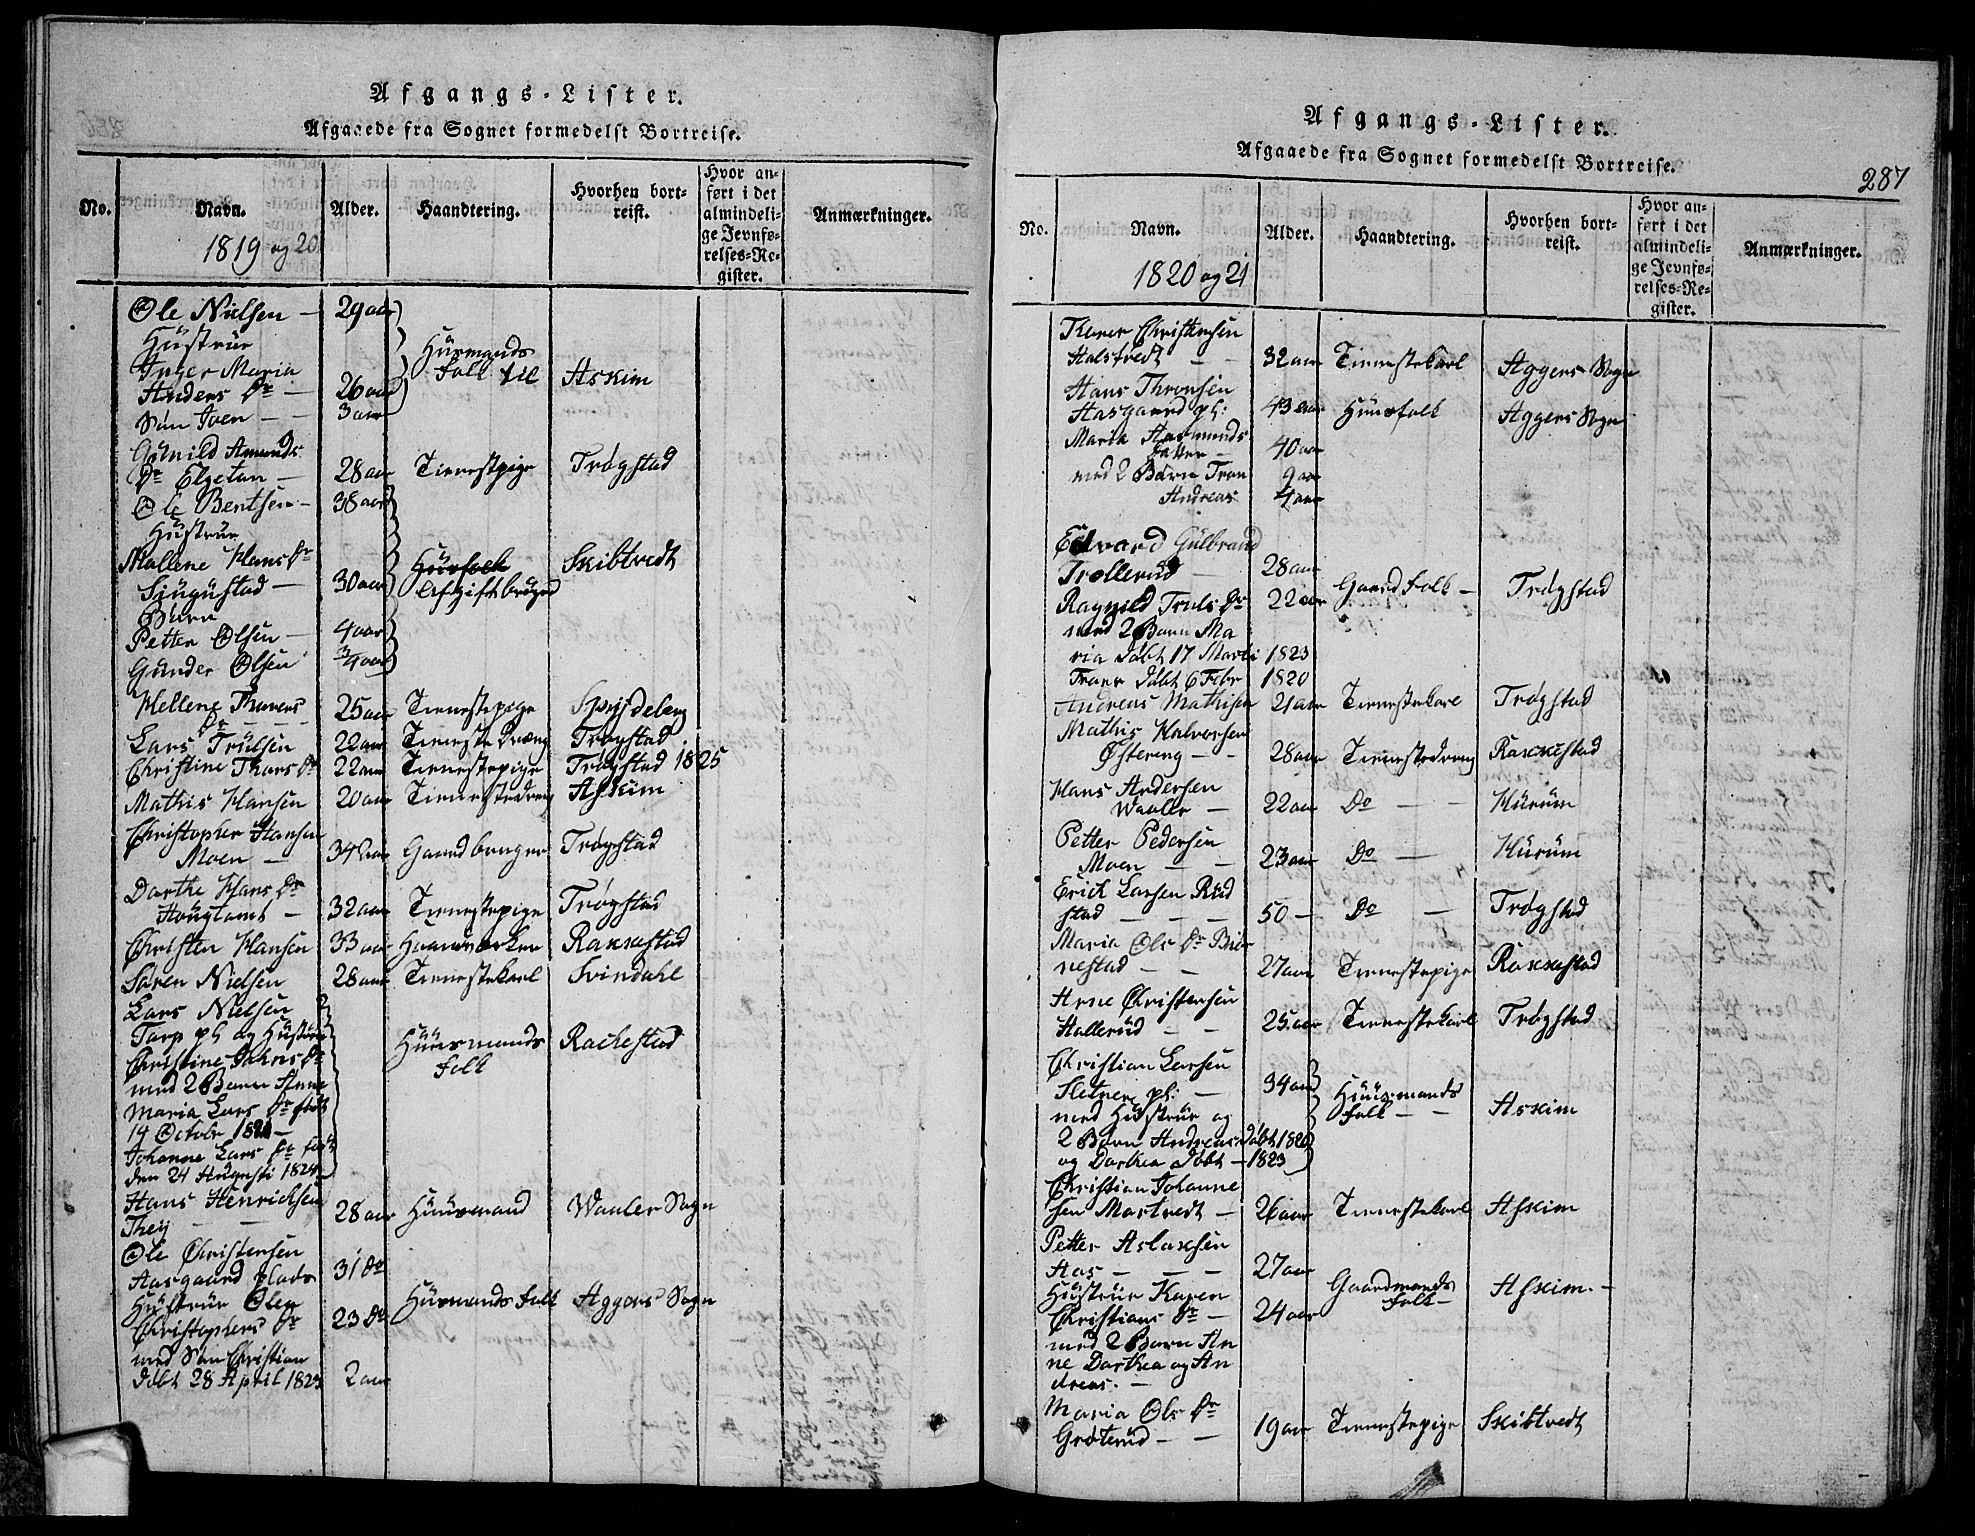 Afgangs-Lister.
Afgaaede fra Sognet formedelst Bortreise.
No. Navn. Alder. Haandtering. Hvorhen bortreist. Hvor anført i det almindelige Jevnførelses-Register. Anmærkninger.
1819 og 20
Ole Nielsen — 29 aar
Hustrue
Inger Maria Huusmands
Anders Dr — 26 aar Folk til Askim
Søn Joen — 3 aar
Gunild Amunds
Dr Elgetun — 28 aar Tienestpige Trøgstad
Ole Bentsen — 38 aar
Hustrue
Mallene Hans Dr Skibtvedt
30 aar Afgiftbruger
Børn
Petter Olsen — 4 aar
Gunder Olsen 3/4 aar
Hellene Thorers
Dr — 25 aar Tienestepige Spydeberg
Lars Trulsen 22 aar Tieneste Dræng Trøgstad
Christine Thors Dr 22 aar Tienestepige Trøgstad 1825
Mathis Hansen 20 aar Tienestedreng Askim
Christopher Hansen
Moen — 34 aar Gaardbruger Trøgstad
Dorthe Hans Dr
32 aar Tienestepige Trøgstad
Christen Hansen 33 aar Haandværker Rakkestad
Søren Nielsen 28 aar Tienestekarl Svindahl
Lars Nielsen
Torp pl og Hustrue Huusmands Rackestad
Christine Johns Dr Folk
med 2 Børn Anne
Maria Lars Dr født
14 Octobr 1821 —
Johanne Lars Dr født
den 24 Augusti 1824
Hans Henrichsen
Theij — 28 aar Huusmand Waaler Sogn
Ole Christensen
Aasgaard plads 31 do
Hustrue Olea Huusmands Folk Aggers Sogn
Christophers Dr 23 do
med Søn Christian
døbt 28 April 1823 2 aar
Afgangs-Lister.
Afgaaede fra Sognet formedelst Bortreise.
287
No. Navn. Alder. Haandtering. Hvorhen bortreist. Hvor anført i det almindelige Jevnførelses-Register. Anmærkninger.
1820 og 21
Christensen
Halstvedt — 32 aar Tienestekarl Aggers Sogn
Hans Thronsen
Aasgaard pl: 43 aar Huusfolk Aggers Sogn
Maria Aasmunds
Datter — 40 aar
med 2 Børn Tron 9 aar
Andreas 4 aar
Edvard Gulbrand
Trollerud — 28 aar
Ragnild Truls Dr 22 aar Gaard Folk — Trøgstad
med 2 Børn Ma
ria døbt 17 Marti 1823
døbt 6 Febr 1820
Andreas Mathisen 21 aar Tienestekarl Trøgstad
Mathis Halvorsen
Østereng — 28 aar Tienestedreng Rakkestad
Hans Andersen
Waaler — 22 aar Do — Hurum
Petter Pedersen
Moen — 23 aar Do — Hurum
Erich Larsen Rud
stad — 50 — Do — Trøgstad
Maria Ols Dr
nestad — 27 aar Tienestepige Rakkestad
Arne Christensen
Hallerud — 25 aar Tienestekarl Trøgstad
Christian Larsen
Sletner pl: — 34 aar Huusmands
med Hustrue og Folk — Askim
2 Børn Andreas døbt 1820
og Dorthea døbt — 1823
Christian Johanne
sen Mortvedt — 26 aar Tienestekarl Askim
Petter Aslaksen
Aas — 27 aar
Hustrue Karen Gaardmands Askim. —
Christians Dr — 24 aar Folk —
med 2 Børn An
ne Dorthea og An
dreas. —
Maria Ols Dr
Grøterud — 19 aar Tienestepige Skibtvedt